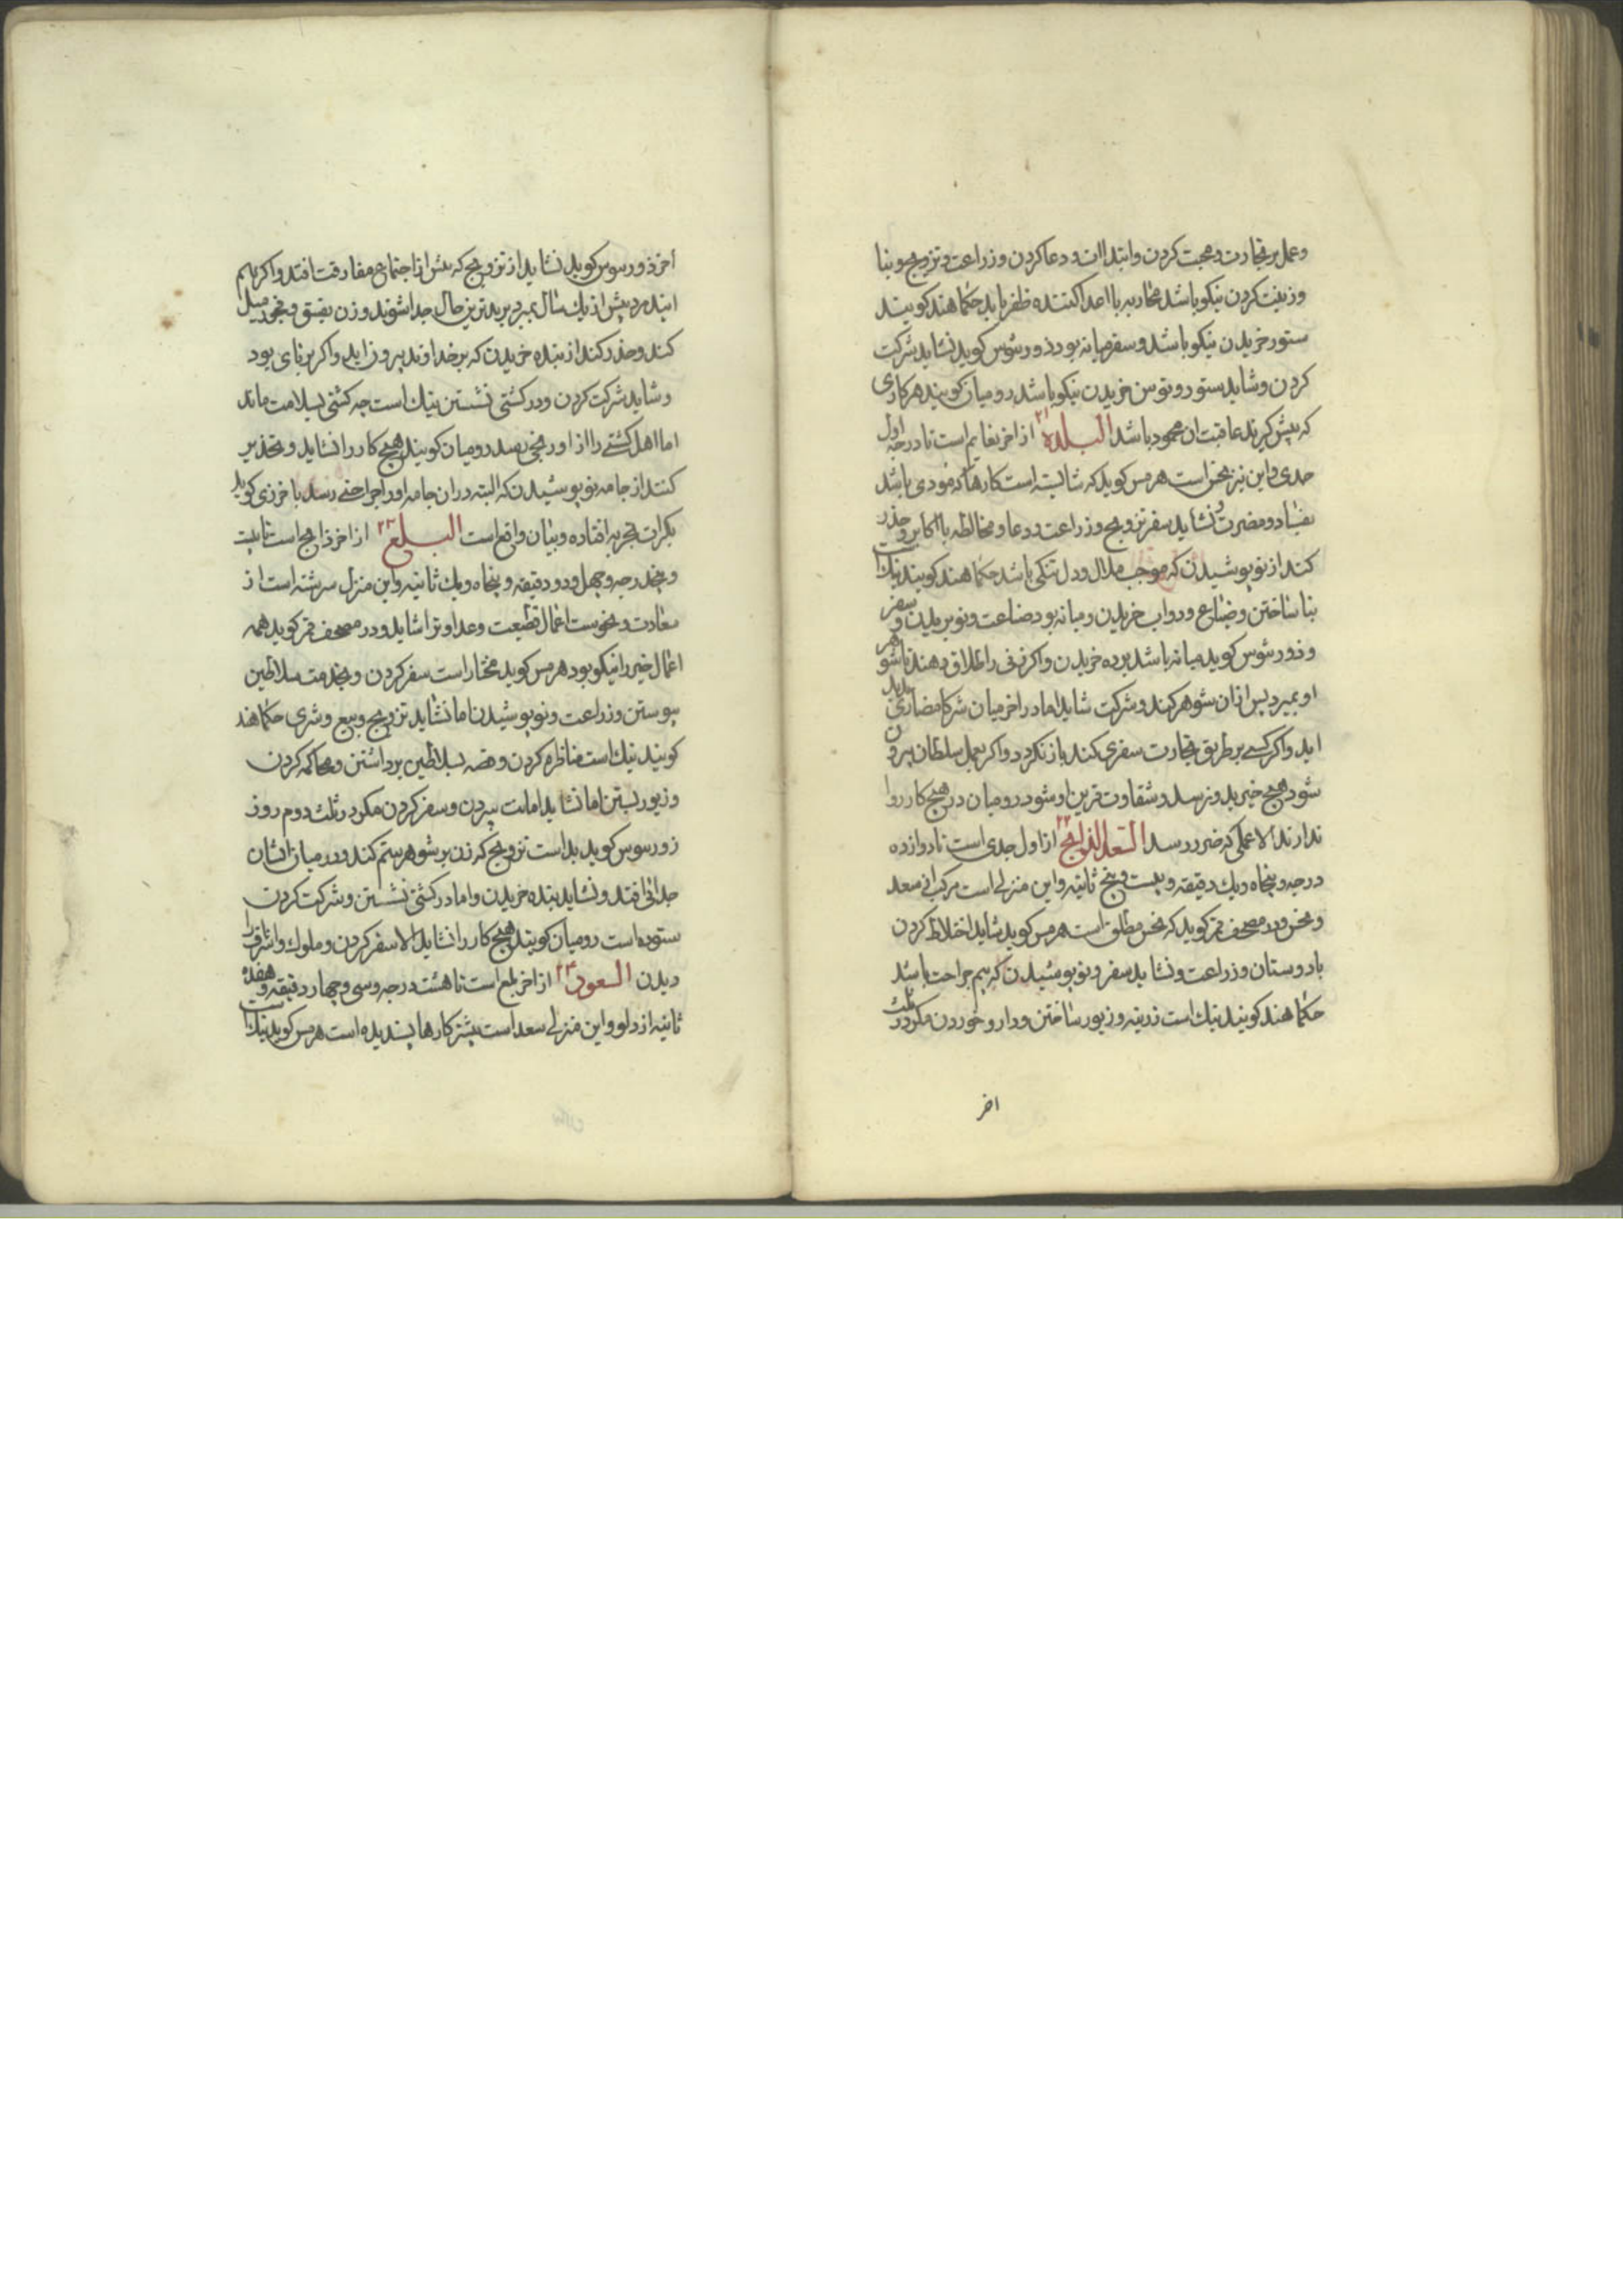 وعمل بر تجارت و محبت کردن وابتداات و دعا کردن و زراعت و تزویج و بنا
و زینت کردن نیکو باشد محاربه با اعدا کننده ظفر یابد حکما هند کویند
ستور خریدن نیکو باشد و سفر میانه بود ذورسوس کوید نشاید شرکت
کردن و شاید ستور و توسن خریدن نیکو باشد رومیان کویند هر کاری
که پیش کیرند عاقبت ان محمود باشد البلده ۲۱ از اخر نعایم است تا درجه اول
جدی و این نیز نحس است هرمس کوید که شایسته است کارها که مودی باشد
بفساد و مضرت و نشاید سفر و تزویج و زراعت و دعا و مخالطه با اکابر و حذر
کنند از نو پوشیدن که موجب ملال و دل تنکی باشد حکما هند کویند نیک است
بنا ساختن و ضیاع و دواب خریدن و میانه بود صناعت و نو بریدن و سفر
و ذورسوس کوید میانه باشد برده خریدن و اکر زنی را طلاق دهند تا شوهر
او بمیرد پس از ان شوهر کند و شرکت شاید اما در اخر میان شرکا مضارتی پدید
اید و اکر کسی بر طریق تجارت سفری کند باز نکردد و اکر بعمل سلطان بیرون
شود هیچ خیر بدو نرسد و شقاوت قرین او شود رومیان در هیچ کار روا
ندارند الا عملی که ضرر رسد السعد الذابح ۲۲ از اول جدی است تا دوازده
درجه و پنجاه و یک دقیقه و بیست و پنج ثانیه و این منزلی است مرکب از سعد
و نحس و در مصحف قمر کوید که نحس مطلق است هرمس کوید شاید اختلاط کردن
با دوستان و زراعت و نشاید سفر و نو پوشیدن که بیم جراحت باشد
حکما هند کویند نیک است زرینه و زیور ساختن و دارو خوردن مکر در ثلث
اخر
اخر ذورسوس کوید نشاید از تزویج که پیش از اجتماع مفارقت افتد و اکر بهم
ایند مرد پیش از یک سال بمیرد بر بدترین حال جدا شوند و زن بفسق و فجور میل
کند و حذر کند از بنده خریدن که بر خداوند بیرون اید و اکر بر نای بود
و شاید شرکت کردن و در کشتی نشستن نیک است چه کشتی بسلامت ماند
اما اهل کشتی را از او رنجی رسد رومیان کویند هیچ کار را نشاید و تحذیر
کنند از جامه نو پوشیدن که البته در ان جامه او را جراحتی رسد باخرزی کوید
بکرات تجربه افتاده و بیان واقع است البلع ۲۳ از اخر ذابح است تا بیست
و پنج درجه و چهل و دو دقیقه و پنجاه و یک ثانیه و این منزل سرشته است از
سعادت و نحوست اعمال قطیعت و عداوت را شاید و در مصحف قمر کوید همه
اعمال خیر را نیکو بود هرمس کوید مختار است سفر کردن و بخدمت سلاطین
پیوستن و زراعت و نو پوشیدن اما نشاید تزویج و بیع و شری حکما هند
کویند نیک است مناظره کردن و قصه بسلاطین برداشتن و محاکمه کردن
و زیور بستن اما نشاید امانت سپردن و سفر کردن مکر در ثلث دوم روز
زورسوس کوید بد است تزویج که زن بر شوهر ستم کند و در میان ایشان
جدائی افتد و نشاید بنده خریدن و اما در کشتی نشستن و شرکت کردن
ستوده است رومیان کویند هیچ کار را نشاید الا سفر کردن و ملوک و اشراف را
دیدن السعود ۲۴ از اخر بلع است تا هشت درجه و سی و چهار دقیقه و هفده
ثانیه از دلو و این منزلی سعد است بیشتر کارها پسندیده است هرمس کوید نیک است